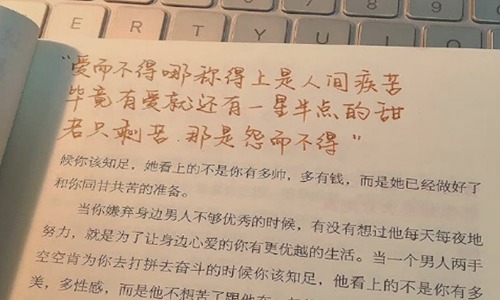 E R T Y U I
"爱而不得哪称得上是人间疾苦
毕竟有爱就还有一星半点的甜
若只剩苦.那是怨而不得"
候你该知足，她看上的不是你有多帅，多有钱，而是她已经做好了
和你同甘共苦的准备。
当你嫌弃身边男人不够优秀的时候，有没有想过他每天每夜地
努力，就是为了让身边心爱的你有更优越的生活。当一个男人两手
空空肯为你去打拼去奋斗的时候你该知足，他看上的不是你有多
美，多性感，而是他不想苦了跟他在